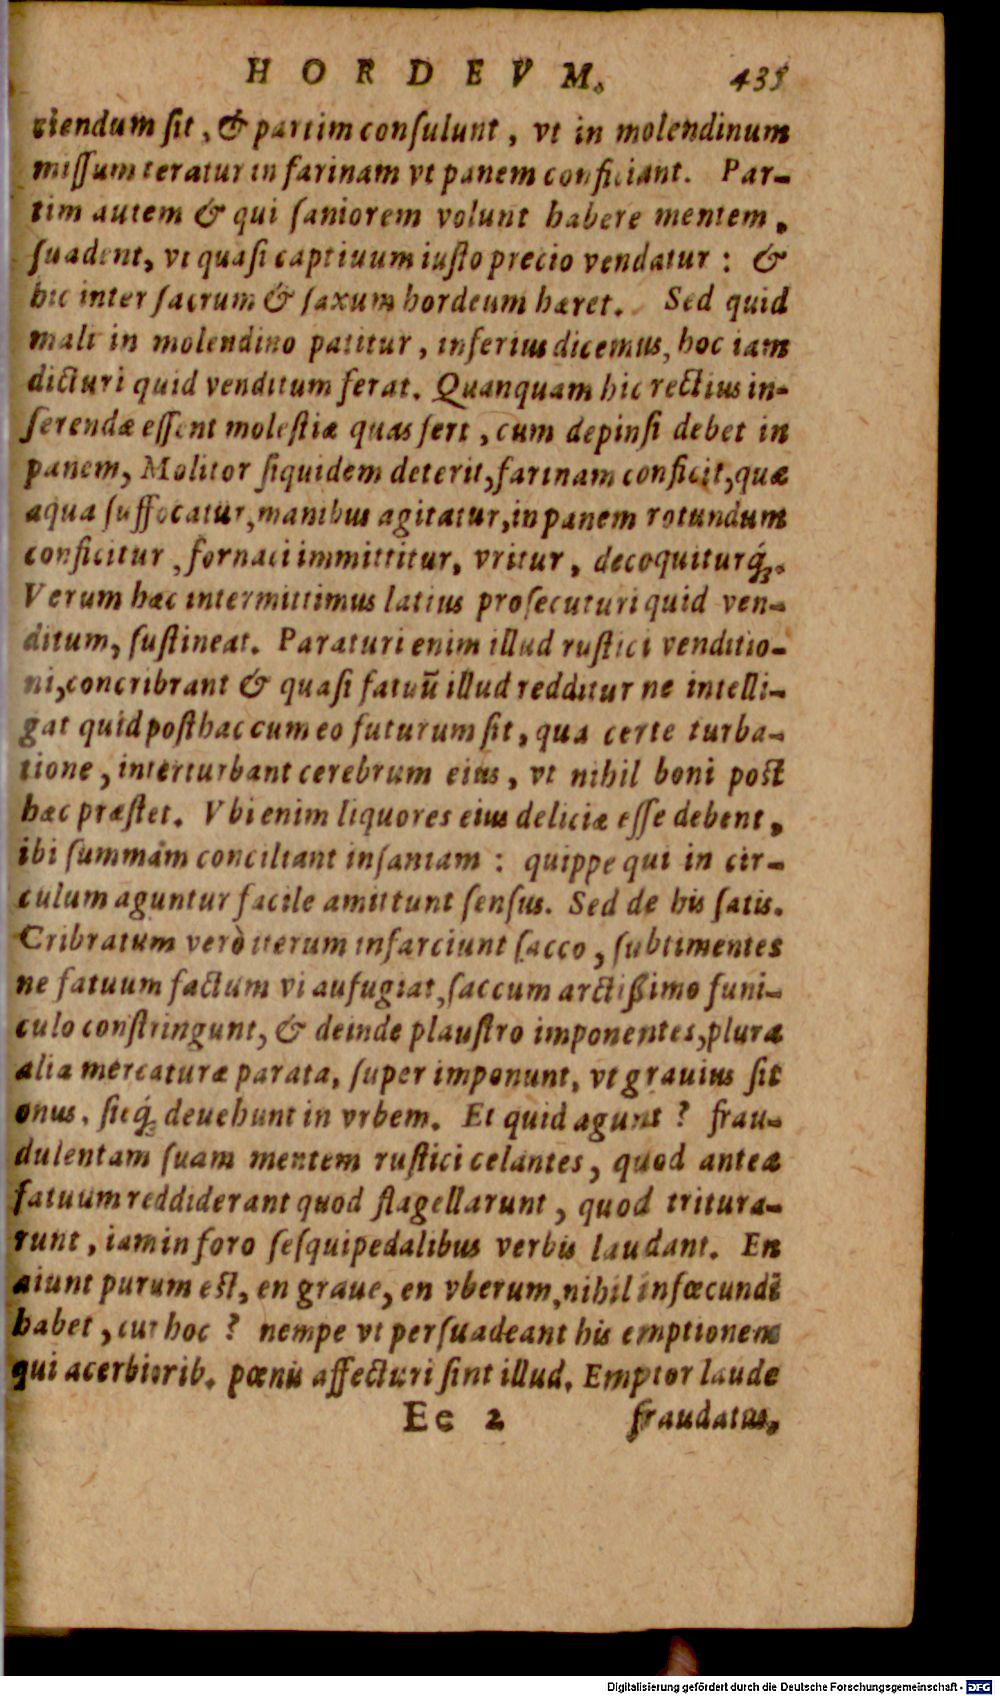 HORDEVM. 435
ciendum ſit, & partim conſulunt, vt in molendinum
miſſum teratur in farinam vt panem conficiant. Par-
tim autem & qui ſaniorem volunt habere mentem,
ſuadent, vt quaſi captiuum iuſto precio vendatur: &
hic inter ſacrum & ſaxum hordeum hæret. Sed quid
mali in molendino patitur, inferius dicemus, hoc iam
dicturi quid venditum ferat. Quanquam hic rectius in-
ſerendæ eſſent moleſtiæ quas fert, cum depinſi debet in
panem, Molitor ſiquidem deterit, farinam conficit, quæ
aqua ſuffocatur, manibus agitatur, in panem rotundum
conficitur, fornaci immittitur, vritur, decoquiturq́;.
Verum hæc intermittimus latius proſecuturi quid ven-
ditum, ſuſtineat. Paraturi enim illud ruſtici venditio-
ni, concribrant & quaſi fatuū illud redditur ne intelli-
gat quid poſthac cum eo futurum ſit, qua certe turba-
tione, interturbant cerebrum eius, vt nihil boni poſt
hæc præſtet. Vbi enim liquores eius deliciæ eſſe debent,
ibi ſummam conciliant inſaniam: quippe qui in cir-
culum aguntur facile amittunt ſenſus. Sed de his ſatis.
Cribratum verò iterum infarciunt ſacco, ſubtimentes
ne fatuum factum vi aufugiat, ſaccum arctißimo funi-
culo conſtringunt, & deinde plauſtro imponentes, pluræ
alia mercaturæ parata, ſuper imponunt, vt grauius ſit
onus, ſicq́; deuehunt in vrbem. Et quid agunt? frau-
dulentam ſuam mentem ruſtici celantes, quod anteæ
fatuum reddiderant quod flagellarunt, quod tritura-
runt, iam in foro ſeſquipedalibus verbis laudant. En
aiunt purum eſt, en graue, en vberum, nihil infœcundi
habet, cur hoc? nempe vt perſuadeant his emptionem
qui acerbiorib. pœnis affecturi ſint illud. Emptor laude
Ee 2 fraudatus,
Digitalisierung gefördert durch die Deutsche Forschungsgemeinschaft - DFG